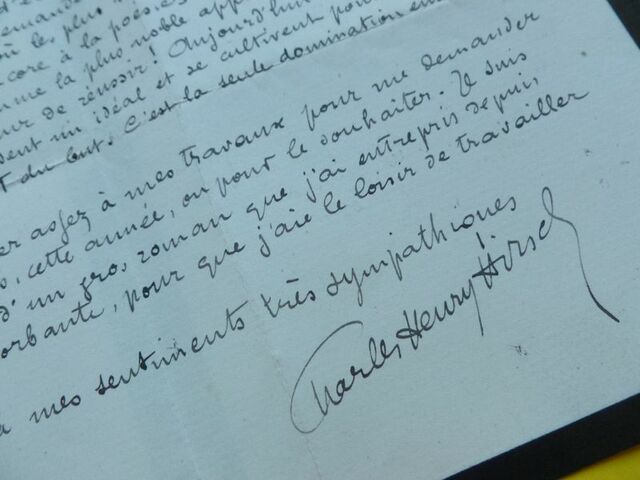 où le plus
encore à la poésie
la plus noble
de réussir! Aujourd'hui
un idéal et se cultivent pour
du but. C'est la seule domination
assez à mes travaux pour me demander
cette année, on peut le souhaiter. Je suis
d'un gros roman que j'ai entrepris depuis
pour que j'aie le loisir de travailler
mes sentiments très sympathiques
Charles Henry Hirsch